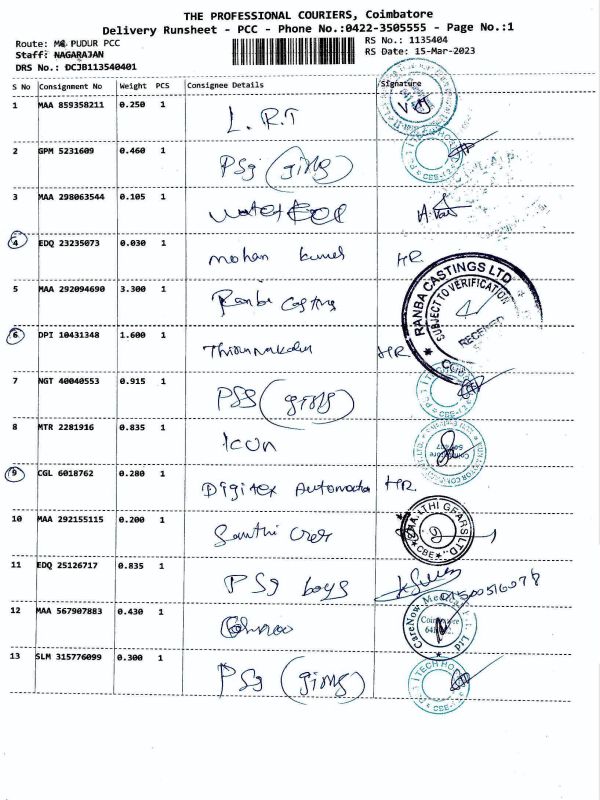 THE PROFESSIONAL COURIERS, Coimbatore
Delivery Runsheet - PCC - Phone No.:0422-3505555 - Page No.:1
Route: PUDUR PCC RS No.: 1135404
Staff: NAGARAJAN RS Date: 15-Mar-2023
DRS No.: DCJB113540401
S No Consignment No Weight PCS Consignee Details Signature
1 MAA 859358211 0.250 1
L.R.T
2 GPM 5231609 0.460 1
PSg (girls)
3 MAA 298063544 0.105 1
4 EDQ 23235073 0.030 1
mohan HR
5 MAA 292094690 3.300 1
Ranba Casting
RANBA CASTINGS LTD
SUBJECT TO VERIFICATION
RECEIVED
6 DPI 10431348 1.600 1
HR
7 NGT 40040553 0.915 1
PSg (girls)
8 MTR 2281916 0.835 1
Icon
9 CGL 6018762 0.280 1
Digitex HR
10 MAA 292155115 0.200 1
Santhi
GEARS LTD.
CBE
11 EDQ 25126717 0.835 1
PSg boys
12 MAA 567907883 0.430 1
CareNow
Coimbatore
13 SLM 315776099 0.300 1
PSg (girls)